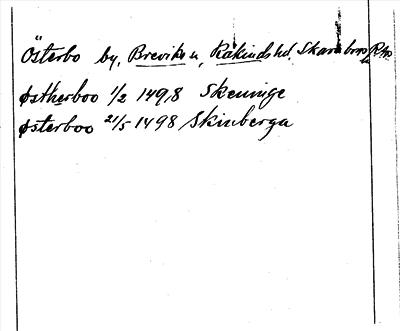 Österbo by, Breviks n, Kåkinds hd. Skarab
østherboo 1/2 1498 Skeninge
østerboo 21/5 1498 Skinberga